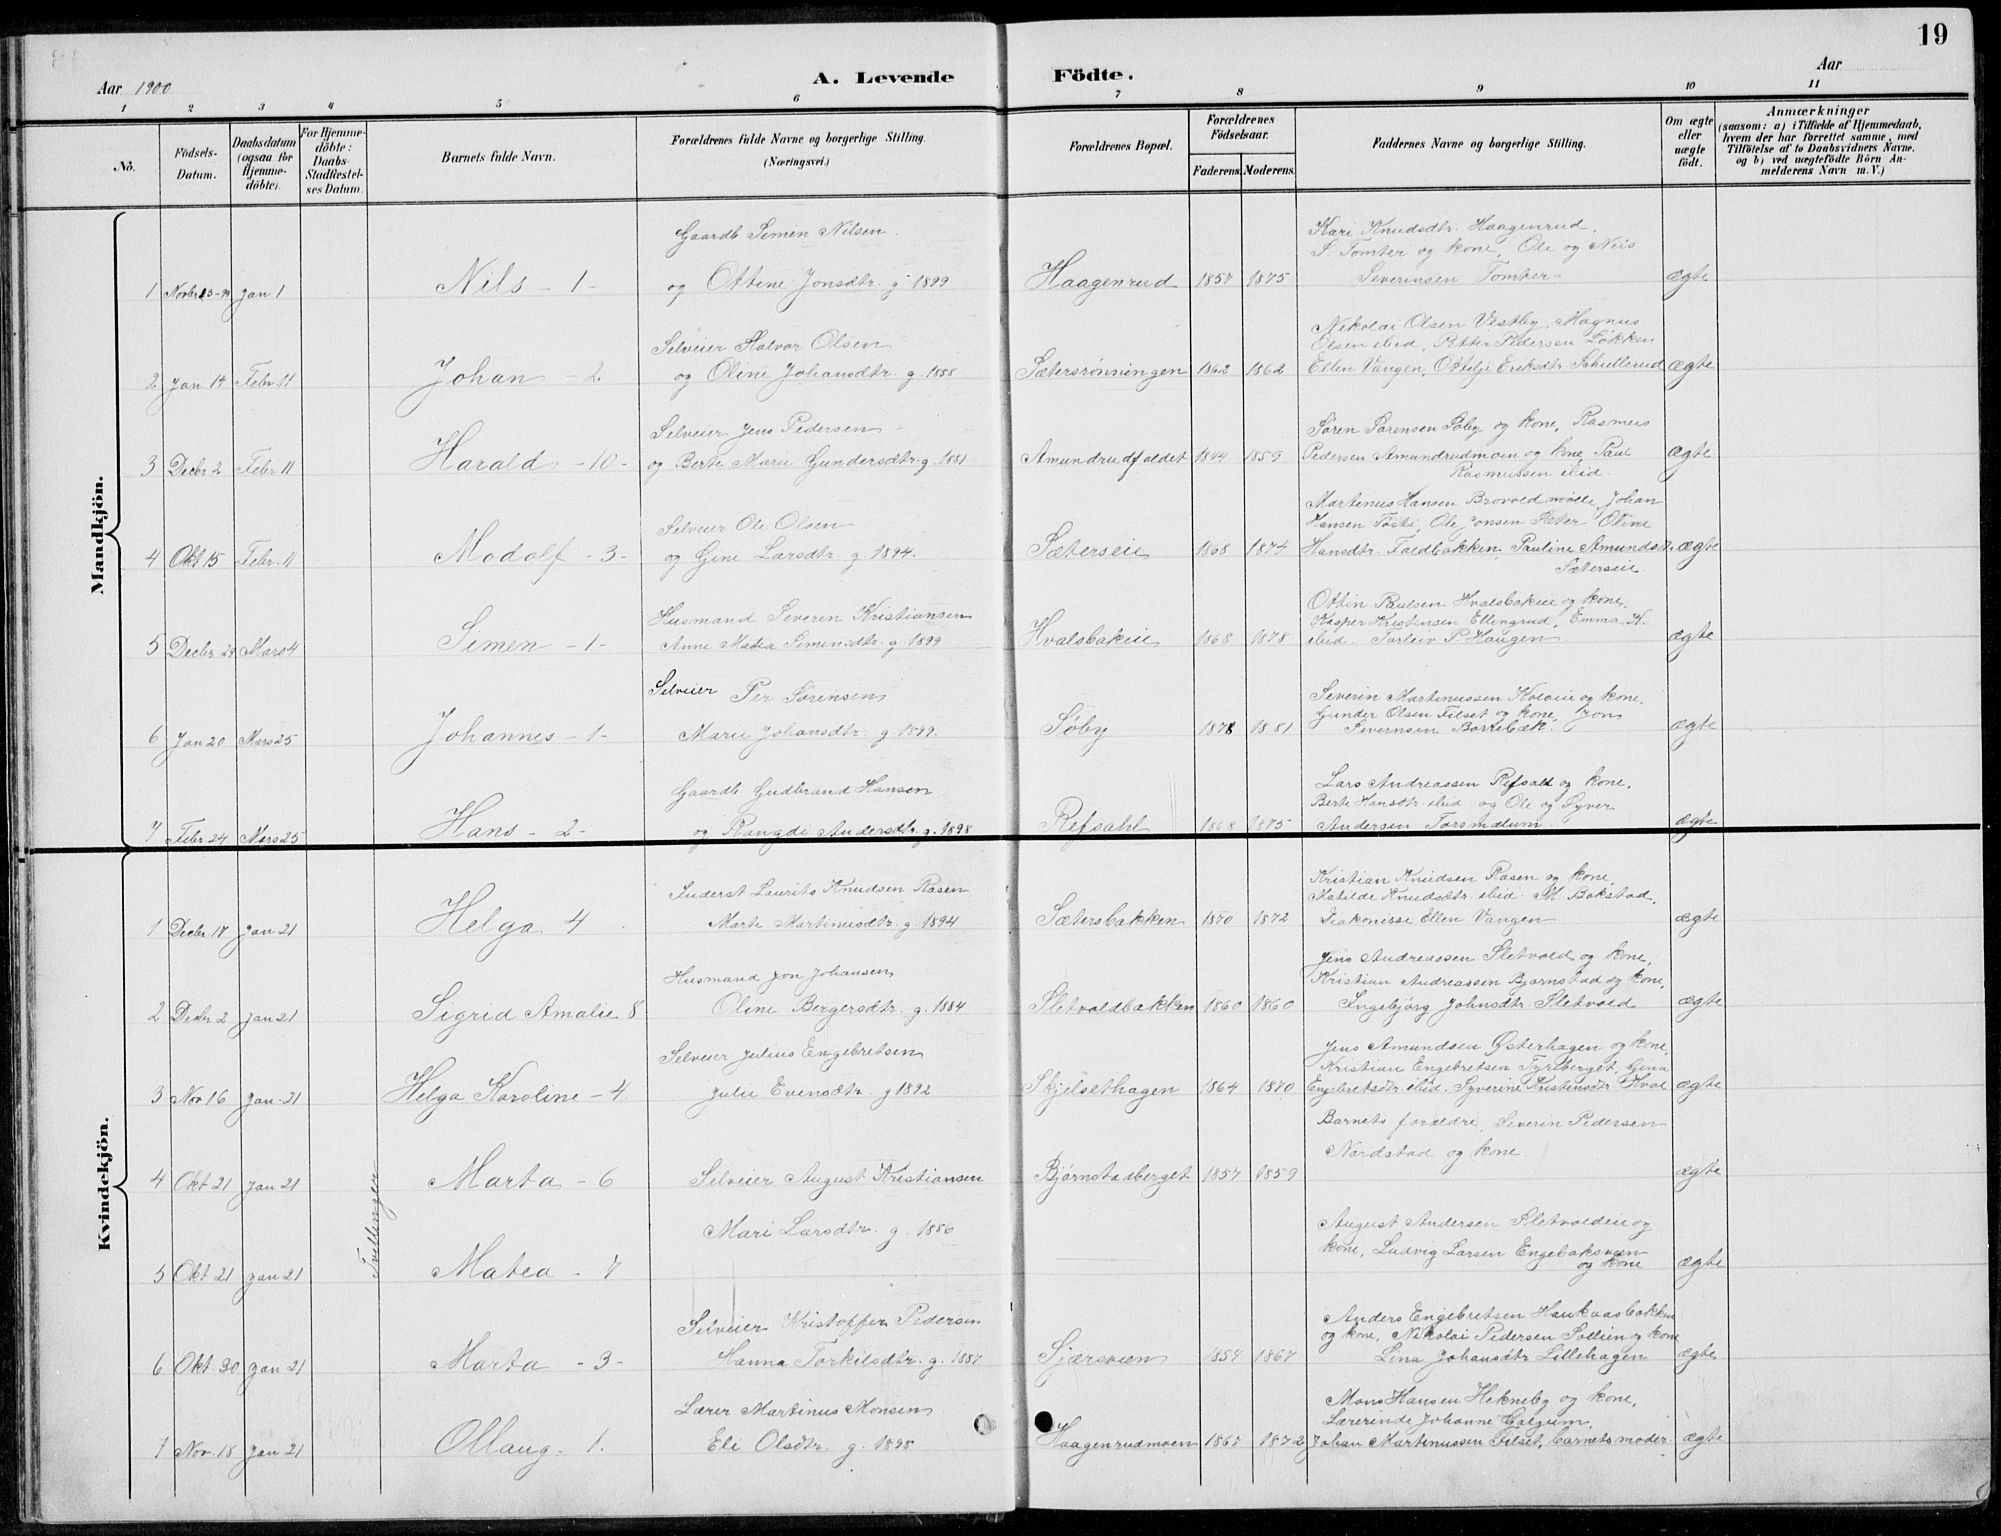 19
Aar 1900
A. Levende Födte.
Aar
1 2 3 4 5 6 7 8 9 10 11
No.
Födsels-Datum.
Daabsdatum (ogsaa for Hjemme-döbte).
For Hjemme-döbte: Daabs-Stadfæstel-ses Datum.
Barnets fulde Navn.
Forældrenes fulde Navne og borgerlige Stilling. (Næringsvei.)
Forældrenes Bopæl.
Forældrenes Födselsaar.
Faderens. Moderens.
Faddernes Navne og borgerlige Stilling.
Om ægte eller uægte födt.
Anmærkninger
(saasom: a) i Tilfælde af Hjemmedaab,
hvem der har forrettet samme, med
Tilföielse af to Daabsvidners Navne,
og b) ved uægtefödte Börn An-
melderens Navn m. V.)
Mandkjön.
Gaardb Simen Nilsen
Kari Knudsdtr. Haagenrud,
S. Tomter og kone, Ole og Nils
1 Novbr 13-99 Jan 1 Nils - 1 - og Ottine Jonsdtr. g 1899 Haagenrud 1857 1875 Severinsen Tomter ægte
Selveier Halvor Olsen
Nikolai Olsen Vestby, Magnus
Olsen ibid, Petter Pedersen Løkken
2 Jan 14 Febr 11 Johan - 2. og Oline Johansdtr. g. 1888 Sætersrønningen 1862 1862 Ellen Vangen, Ottilje Eriksdtr. ægte
Selveier Jens Pedersen
Søren Sørensen Søby og kone, Rasmus
3 Decbr 2 Febr 11 Harald - 10 - og Berte Marie Gundersdtr. g. 1881 Amundrudfaldet 1844 1859 Pedersen Amundrudmoen og kone Paul ægte
Rasmussen ibid.
Selveier Ole Olsen
Martinus Hansen Brovold mølle, Johan
Hansen Ole Jonsen Sæter Oline
4 Okt 15 Febr. 11 Modolf - 3 - og Gine Larsdtr. g. 1894. Sæterseie 1868 1874 Hansdtr. Faldbakken, Pauline Amundsd. ægte
Sæterseie.
Husmand Severin Kristiansen
Ottin Paulsen Hvalsbakeie og kone,
Kasper Kristensen Ellingrud, Emma K.
5 Decbr 29 Mars 4 Simen - 1 - Anne Matea Simensdtr. g 1899 Hvalsbakeie 1868 1878 ibid. Torleiv P. Haugen ægte
Selveier Per Sørensen
Severin Martinussen og kone,
Gunder Olsen Filset og kone, Jon
6 Jan 20 Mars 25 Johannes - 1 - Marie Johansdtr. g. 1899. Søby 1878 1881 Severnsen Borrebæk. ægte
Gaardb Gudbrand Hansen
Lars Andreassen Refsahl og kone,
Berte Hansdtr ibid og Ole og Syver
7 Febr 24 Mars 25 Hans - 2 - og Rangdi Andersdtr. g. 1898 Refsahl 1868 1875 Andersen Torsmælum ægte
Kvindekjön.
Inderst Laurits Knudsen Rasen
Kristian Knudsen Rasen og kone,
Matilde Knudsdtr. ibid. M. Bakstad,
1 Decbr 17 Jan 21 Helga 4 Marte Martinusdtr. g. 1894 Sætersbakken 1870 1872 Diakonisse Ellen Vangen ægte
Husmand Jon Johansen
Jens Andreassen Sletvold og kone,
Kristian Andreassen Bjørnstad og kone,
2 Decbr 2 Jan 21 Sigrid Amalie 8 Oline Bergersdtr. g. 1884 Sletvoldbakken 1860 1860 Ingebjørg Johnsdtr. Sletvold ægte
Selveier Julius Engebretsen
Jens Amundsen Østerhagen og kone,
Kristian Engebretsen Tyriberget, Gina
3 Nov 16 Jan. 21 Helga Karoline - 4 Julie Evensdtr. g 1892 Skjelsethagen 1864 1870 Engebretsdtr. ibid. Syverine Kristensdtr. Hval ægte
Barnets forældre, Severin Pedersen
Nordstad og kone.
4 Okt 21 Jan 21 Marta - 6 Selveier August Kristiansen Bjørnstadberget 1857 1859 ægte
Tvillinger
Mari Larsdtr. g. 1886
August Andersen Sletvoldeie og
kone, Ludvig Larsen Engebaksveen
5 Okt 21 Jan 21 Matea - 7 og kone ægte
Selveier Kristoffer Pedersen
Anders Engebretsen Haukaasbakken
og kone, Nikolai Pedersen Sollien og kone
6 Okt 30 Jan 21 Marta - 3 - Hanna Torkilsdtr. g. 1887 Sjærsveen 1854 1867 Lina Johansdtr Lillehagen ægte
Lærer Martinus Monsen
Mons Hansen Hekneby og kone,
Lærerinde Johanne Galgum,
7 Nov. 18 Jan 21 Ollaug - 1. Eli Olsdtr. g. 1898 Haagenrudmoen 1867 1872 Johan Martinussen Filset, barnets moder ægte